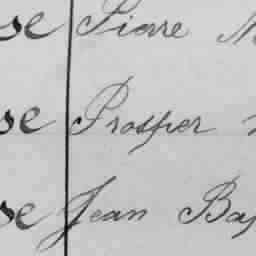 se Piare
se Prosper
se Jean Bap